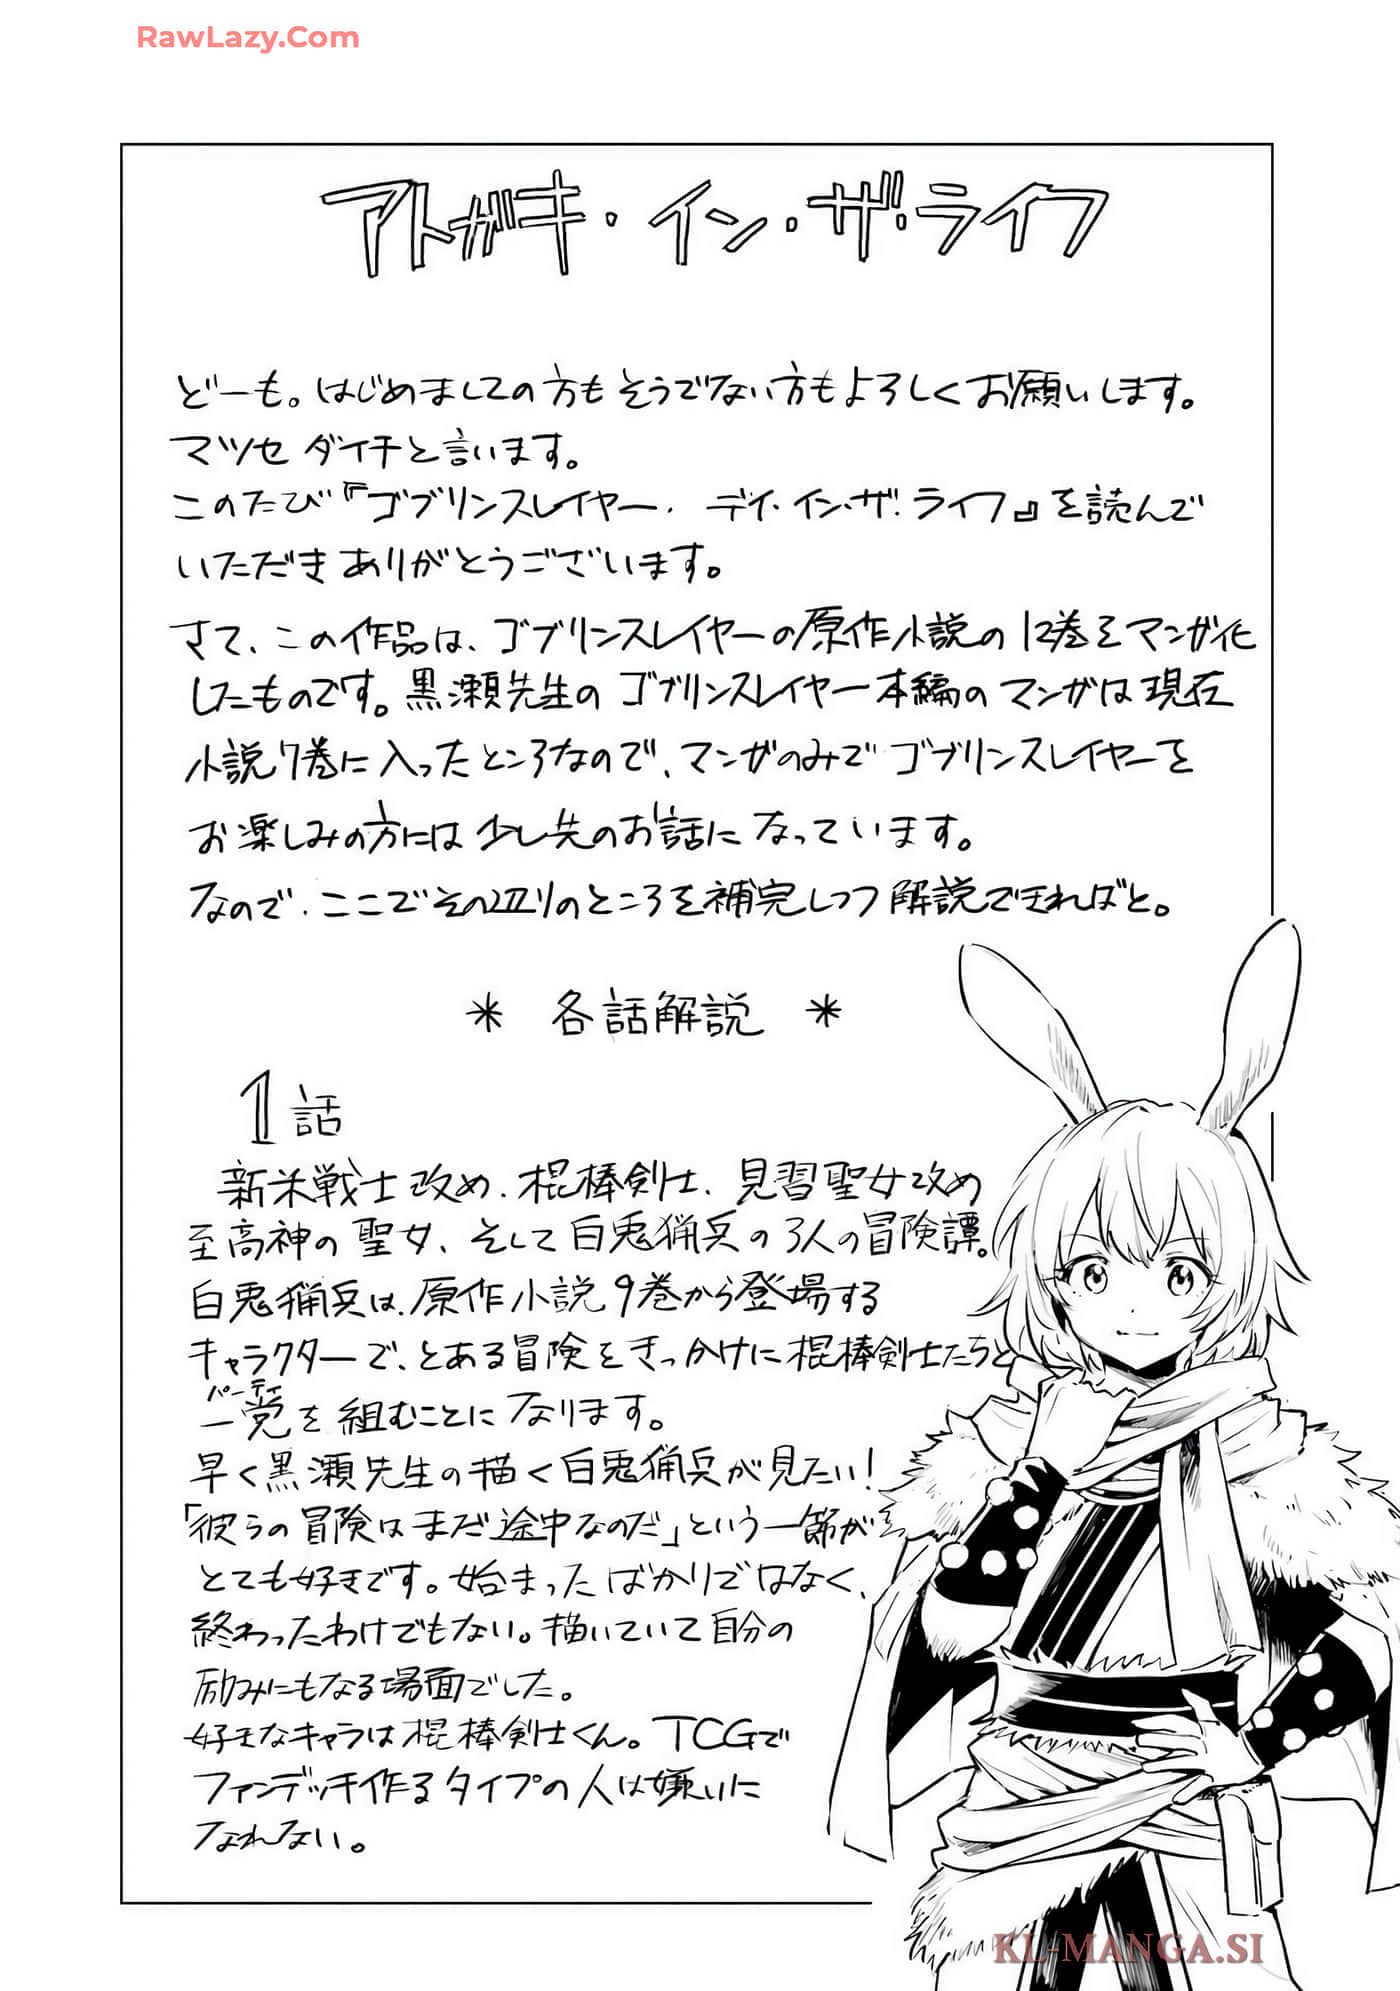 RawLazy.Com
アトガキ・イン・ザ・ライフ
どーも。はじめましての方もそうでない方もよろしくお願いします。
マツセ ダイチと言います。
このたび『ゴブリンスレイヤー. デイ・イン・ザ・ライフ』を読んで
いただきありがとうございます。
さて、この作品は、ゴブリンスレイヤーの原作小説の12巻をマンガ化
したものです。黒瀬先生のゴブリンスレイヤー本編のマンガは現在
小説7巻に入ったところなので、マンガのみでゴブリンスレイヤーを
お楽しみの方には少し先のお話になっています。
なので、ここでその辺りのところを補完しつつ解説できればと。
* 各話解説 *
1話
新米戦士改め、棍棒剣士、見習聖女改め
至高神の聖女、そして白兎猟兵の3人の冒険譚。
白兎猟兵は、原作小説9巻から登場する
キャラクターで、とある冒険をきっかけに棍棒剣士たちと
パーティ
一党を組むことになります。
早く黒瀬先生の描く白兎猟兵が見たい!
「彼らの冒険はまだ途中なのだ」という一節が
とても好きです。始まったばかりではなく、
終わったわけでもない。描いていて自分の
励みにもなる場面でした。
好きなキャラは棍棒剣士くん。TCGで
ファンデッキ作るタイプの人は嫌いに
なれない。
KL-MANGA.SI